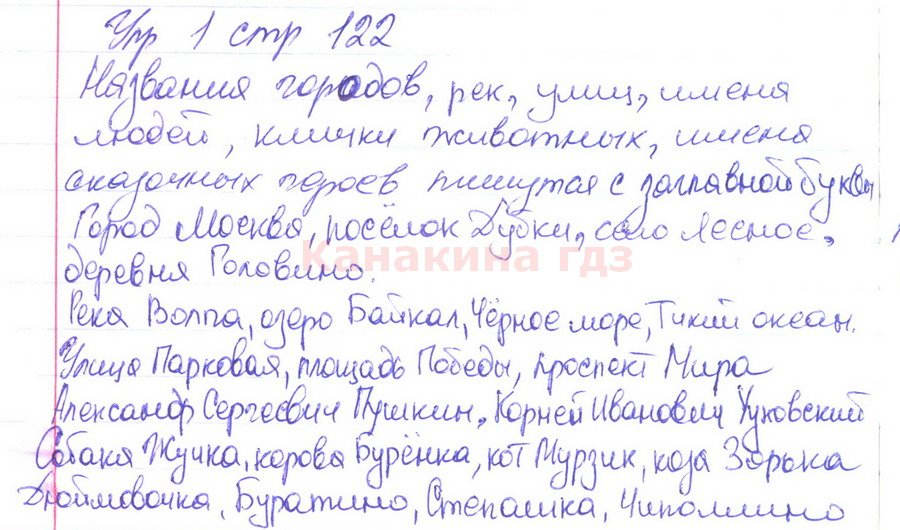 Упр 1 стр 122
Названия городов, рек, улиц, имена
людей, клички животных, имена
сказочных героев пишутся с заглавной буквы
Город Москва, посёлок Дубки, село Лесное,
деревня Головино.
Канакина гдз
Река Волга, озеро Байкал, Чёрное море, Тихий океан.
Улица Парковая, площадь Победы, проспект Мира
Александр Сергеевич Пушкин, Корней Иванович Чуковский
Собака Жучка, корова Бурёнка, кот Мурзик, коза Зорька
Дюймовочка, Буратино, Степашка, Чиполлино